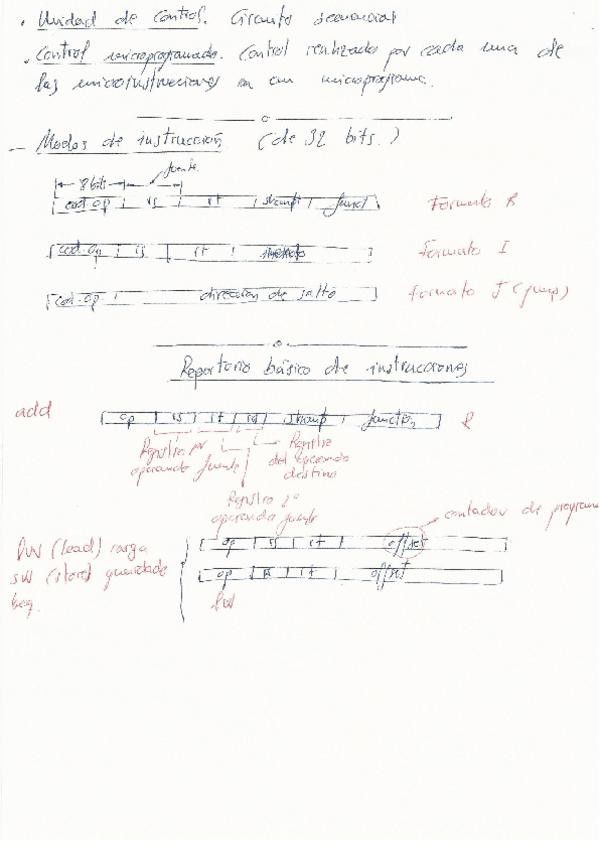 · Unidad de Control. Circuito secuencial
· Control microprogramado. Control realizado por cada una de
las microinstrucciones en un microprograma.
– Modos de instrucción (de 32 bits.)
8 bits fuente
cod. op rs rt shamt funct Formato R
cod. op rs rt Formato I
cod. op. dirección de salto formato J (jump)
Repertorio básico de instrucciones
add op rs rt rd shamp function R
Registro 1er operando fuente
Registro del operando destino
Registro 2º operando fuente
contador de programa
lw (load) carga op rs rt offset
sw (store) op rs rt offset
beq. lw